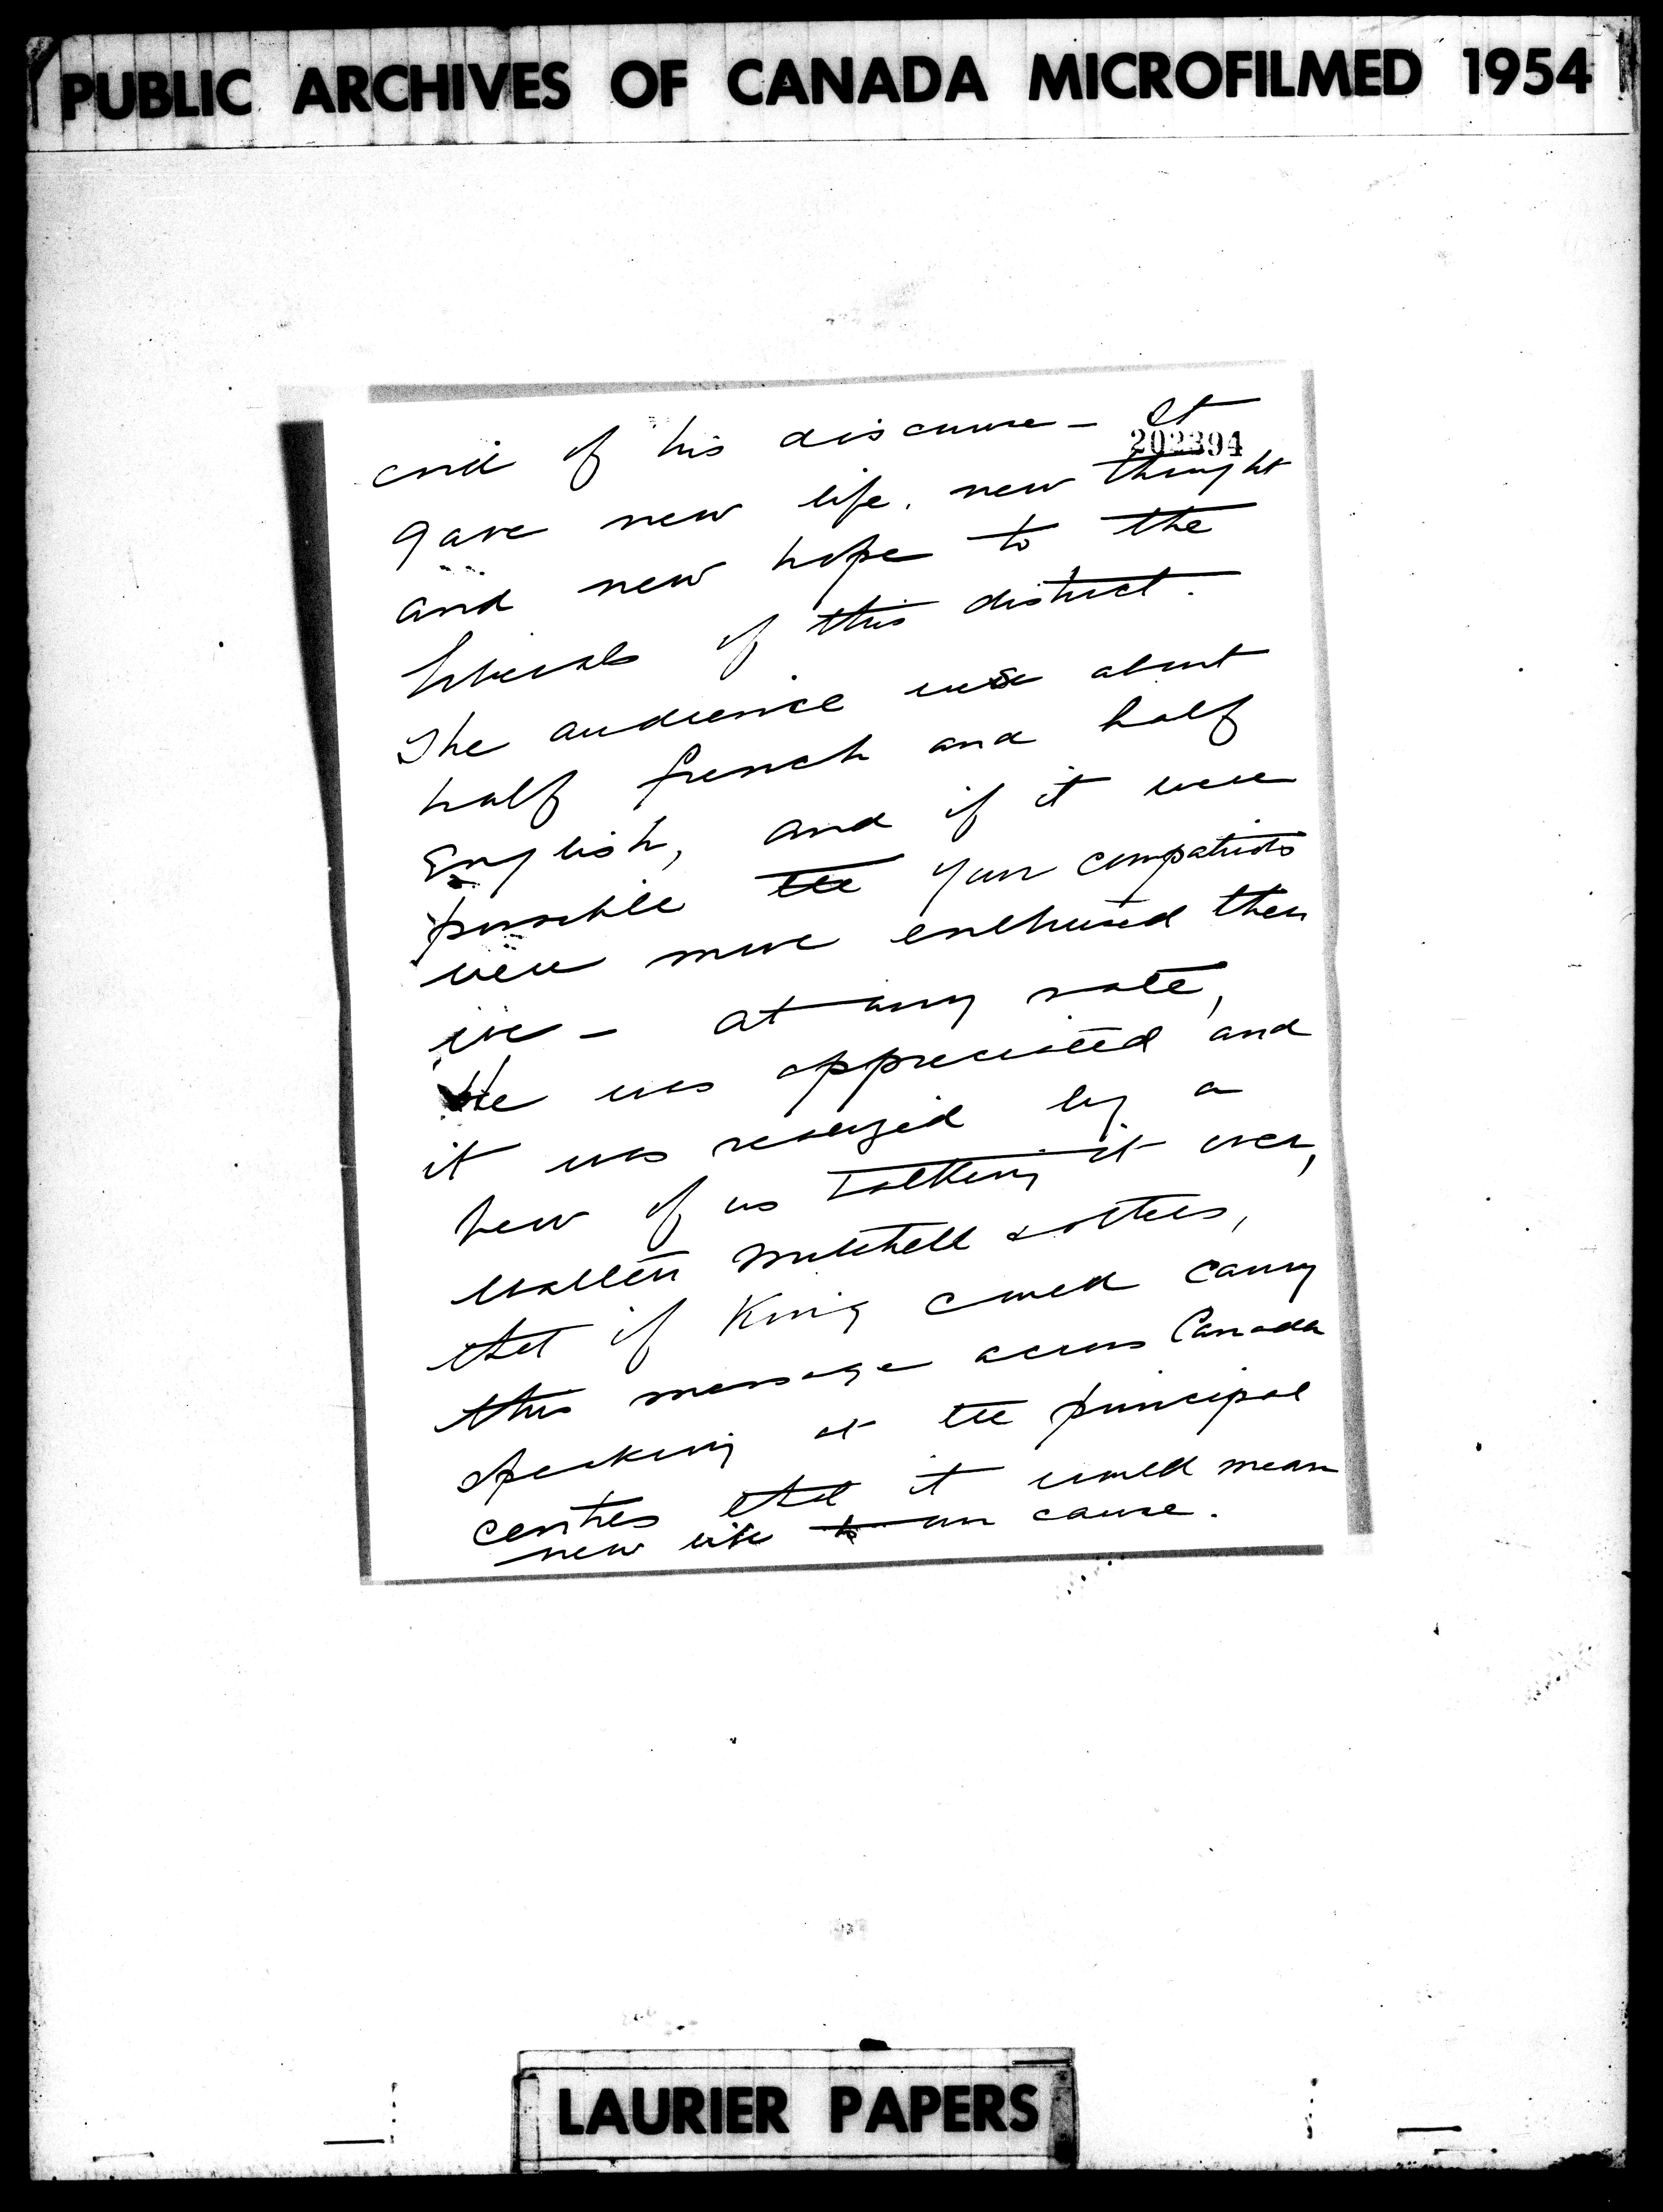 PUBLIC ARCHIVES OF CANADA MICROFILMED 1954
end of his discourse - It
202394
gave new life, new thought
and new hope to the
liberals of this district.
The audience was about
half french and half
English, and if it were
possible the your compatriots
were more enthused then
we - at any rate,
He was appreciated and
it was realized by a
few of us talking it over,
Walter Mitchell & others,
that if King could carry
this message across Canada
speaking at the principal
centres that it would mean
new life to our cause.
LAURIER PAPERS